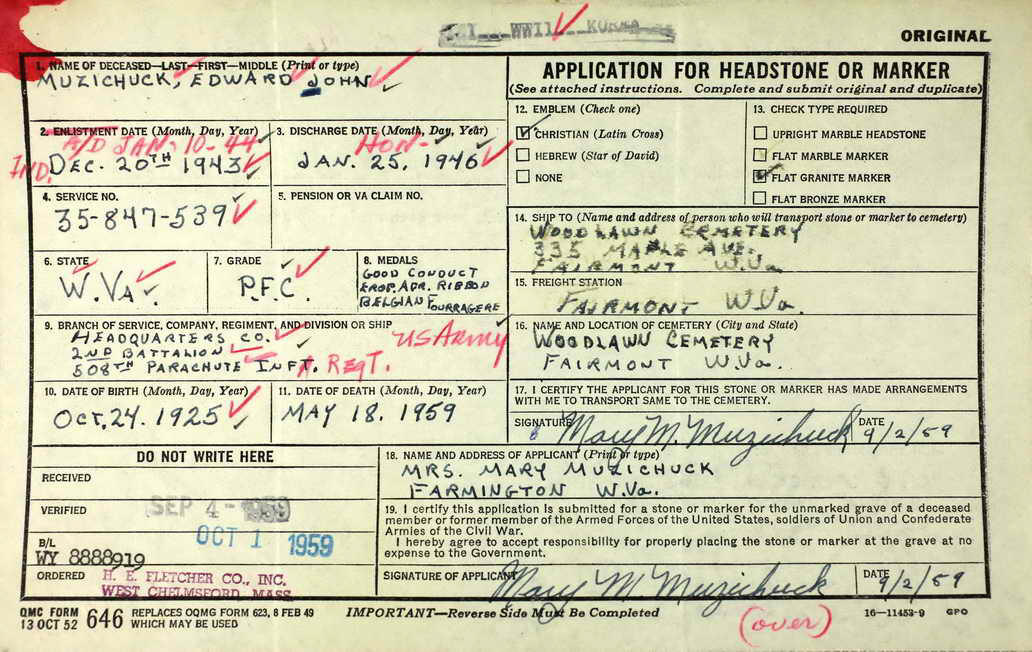 WWII KOREA
ORIGINAL
1. NAME OF DECEASED—LAST—FIRST—MIDDLE (Print or type)
MUZICHUCK, EDWARD JOHN
2. ENLISTMENT DATE (Month, Day, Year)
A/D JAN- 10-44
IND. DEC. 20TH 1943
3. DISCHARGE DATE (Month, Day, Year)
HON-
JAN. 25, 1946
4. SERVICE NO.
35-847-539
5. PENSION OR VA CLAIM NO.
6. STATE
W. VA
7. GRADE
P.F.C.
8. MEDALS
GOOD CONDUCT
EROP. AFR. RIBBON
BELGIAN FOURRAGERE
9. BRANCH OF SERVICE, COMPANY, REGIMENT, AND DIVISION OR SHIP
US Army
HEADQUARTERS CO.
2ND BATTALION
508TH PARACHUTE INFT. REGT.
10. DATE OF BIRTH (Month, Day, Year)
OCT. 24. 1925
11. DATE OF DEATH (Month, Day, Year)
MAY 18. 1959
APPLICATION FOR HEADSTONE OR MARKER
(See attached instructions. Complete and submit original and duplicate)
12. EMBLEM (Check one)
CHRISTIAN (Latin Cross)
HEBREW (Star of David)
NONE
13. CHECK TYPE REQUIRED
UPRIGHT MARBLE HEADSTONE
FLAT MARBLE MARKER
FLAT GRANITE MARKER
FLAT BRONZE MARKER
14. SHIP TO (Name and address of person who will transport stone or marker to cemetery)
WOODLAWN CEMETERY
335 MAPLE AVE.
FAIRMONT W. Va
15. FREIGHT STATION
FAIRMONT W. Va.
16. NAME AND LOCATION OF CEMETERY (City and State)
WOODLAWN CEMETERY
FAIRMONT W. Va.
17. I CERTIFY THE APPLICANT FOR THIS STONE OR MARKER HAS MADE ARRANGEMENTS
WITH ME TO TRANSPORT SAME TO THE CEMETERY.
SIGNATURE Mary M. Muzichuck DATE 9/2/59
DO NOT WRITE HERE
RECEIVED
SEP 4 - 1959
VERIFIED
OCT 1 1959
B/L
WY 8888919
ORDERED H. E. FLETCHER CO., INC.
WEST CHELMSFORD, MASS.
18. NAME AND ADDRESS OF APPLICANT (Print or type)
MRS. MARY MUZICHUCK
FARMINGTON W. Va.
19. I certify this application is submitted for a stone or marker for the unmarked grave of a deceased
member or former member of the Armed Forces of the United States, soldiers of Union and Confederate
Armies of the Civil War.
I hereby agree to accept responsibility for properly placing the stone or marker at the grave at no
expense to the Government.
SIGNATURE OF APPLICANT Mary M Muzichuck DATE 9/2/59
QMC FORM 646 REPLACES OQMG FORM 623, 8 FEB 49
13 OCT 52 WHICH MAY BE USED
IMPORTANT—Reverse Side Must Be Completed
(over)
16—11453-9 GPO